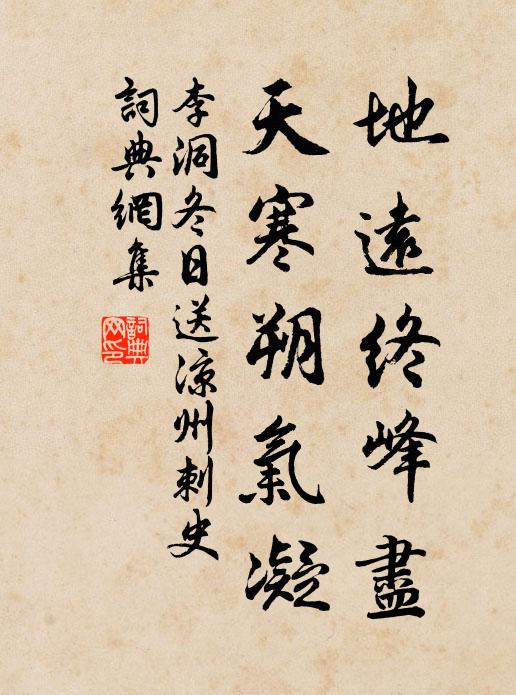 地遠終峰盡
天寒朔氣凝
李洞冬日送涼州刺史
詞典網集
詞典
网印